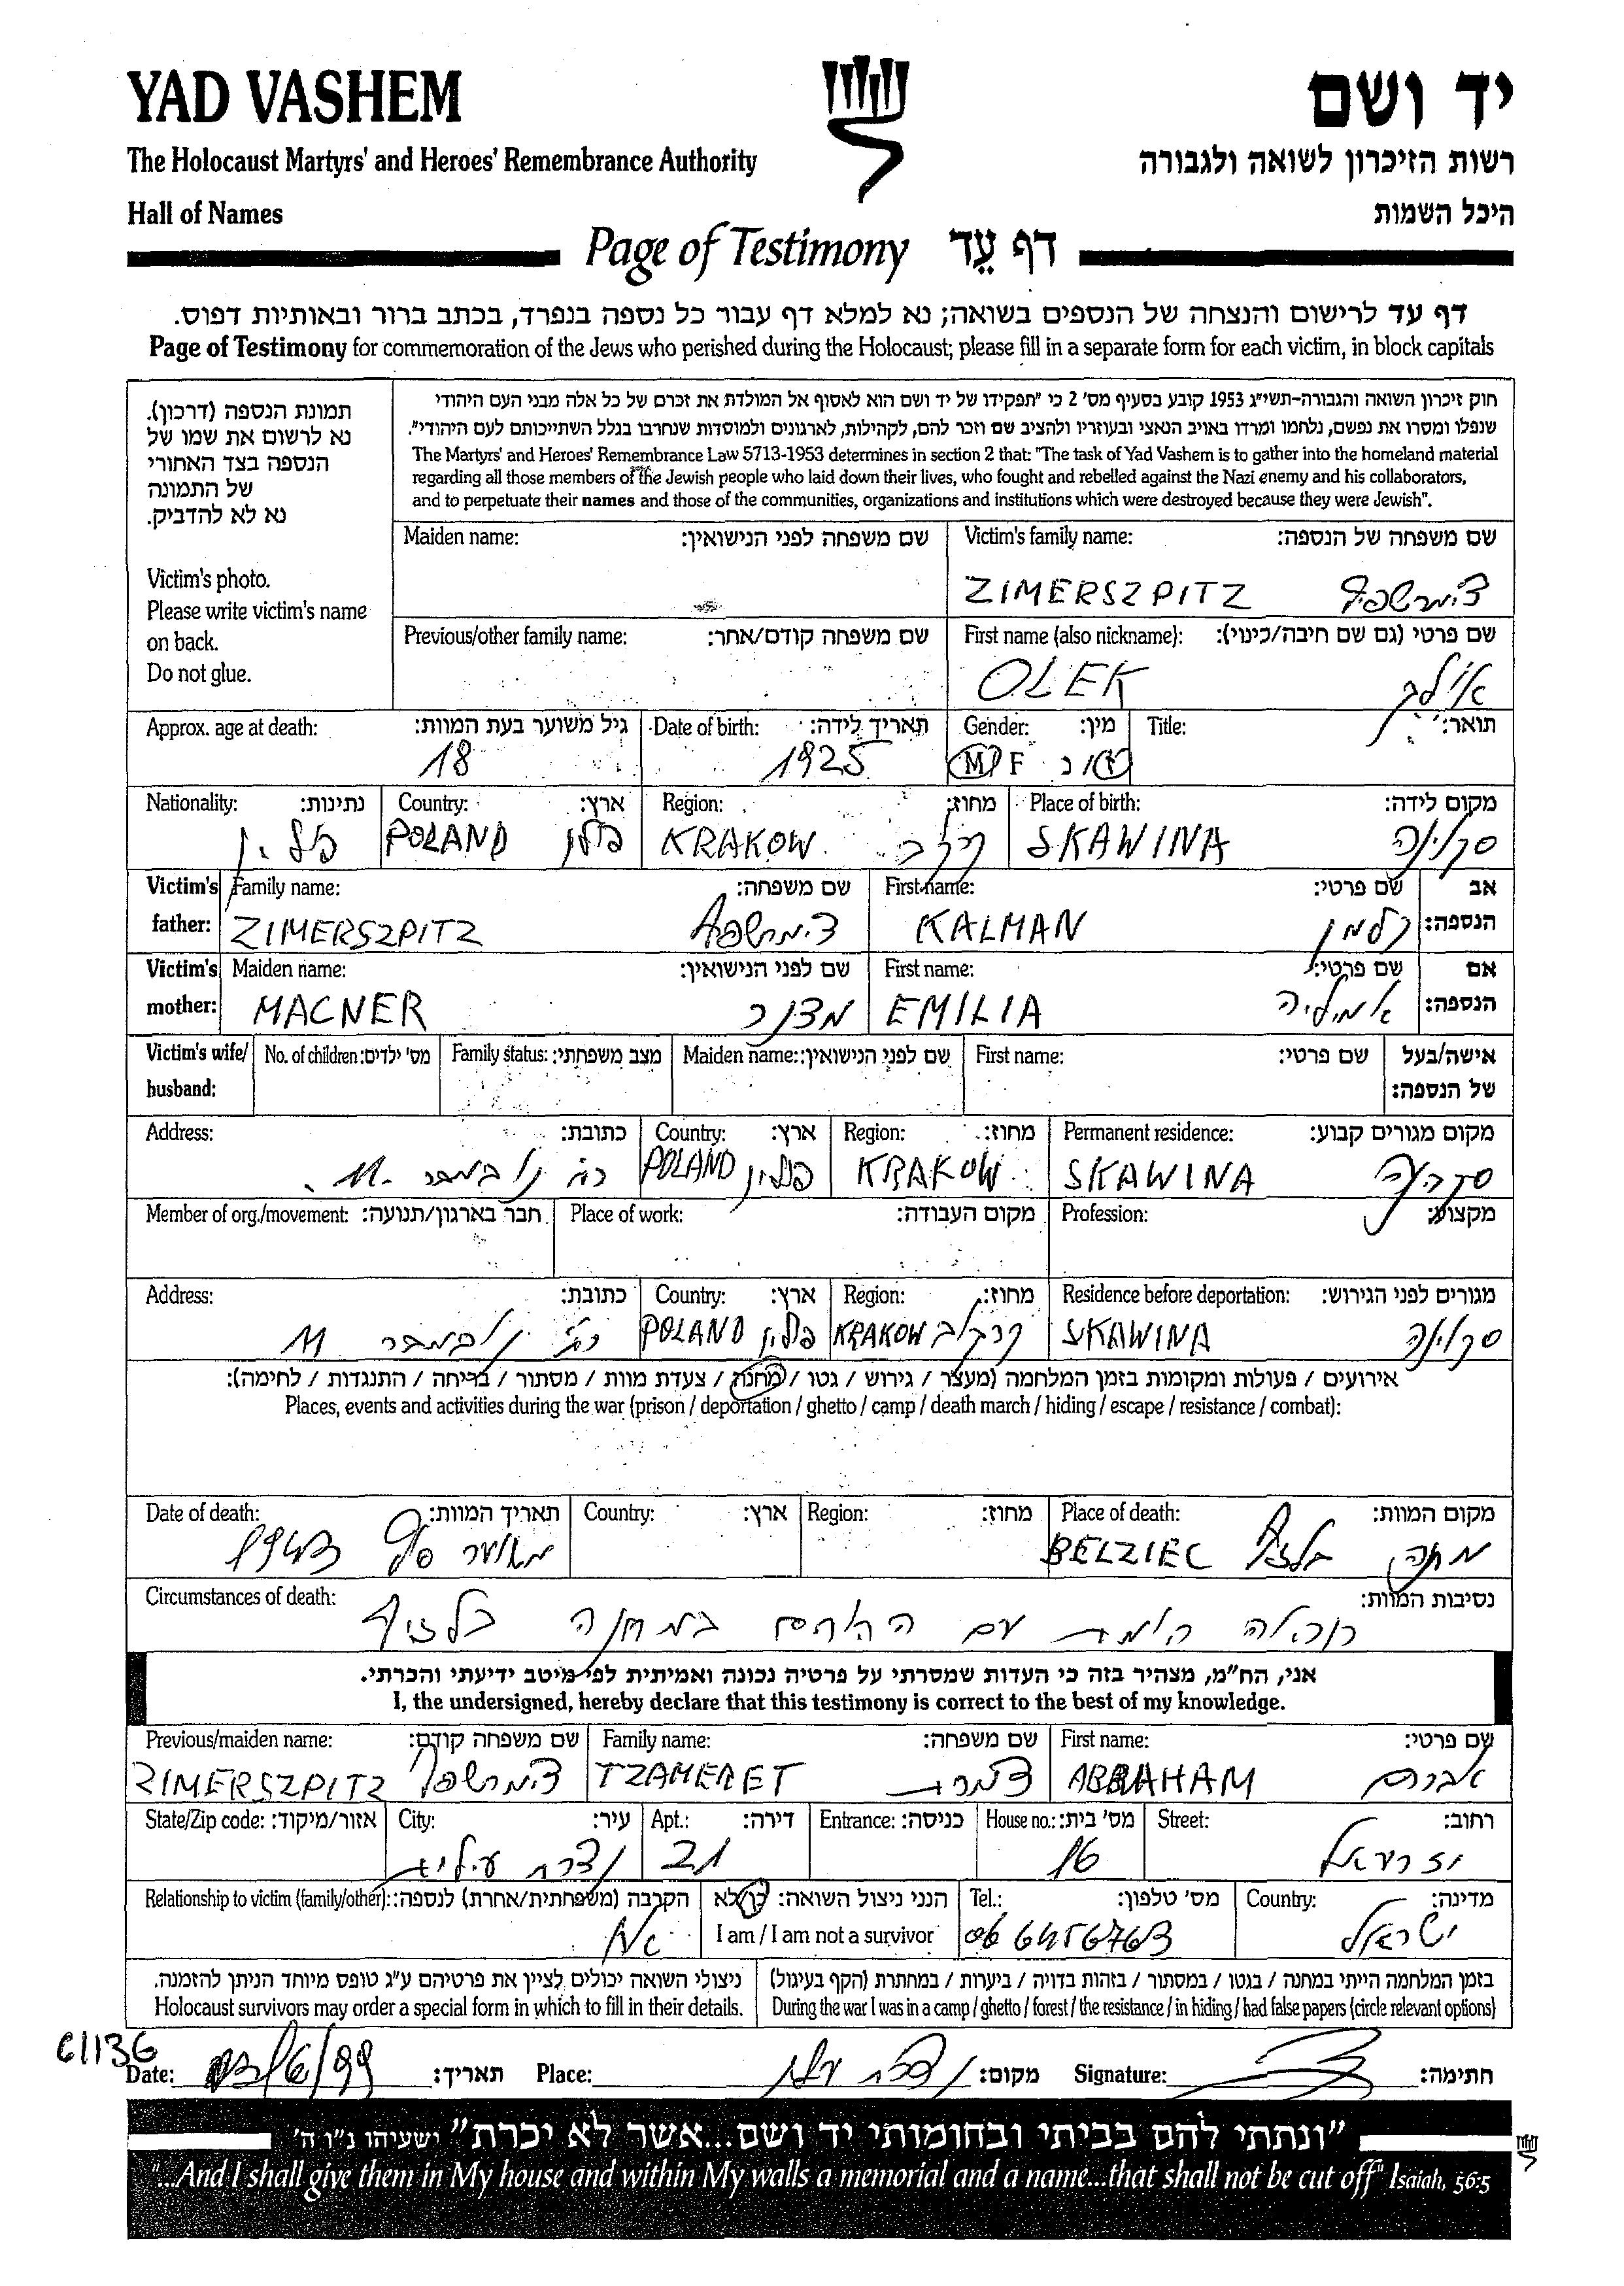 YAD VASHEM
יד ושם
The Holocaust Martyrs' and Heroes' Remembrance Authority
רשות הזיכרון לשואה ולגבורה
Hall of Names
היכל השמות
Page of Testimony דף עֵד
דף עד לרישום והנצחה של הנספים בשואה; נא למלא דף עבור כל נספה בנפרד, בכתב ברור ובאותיות דפוס.
Page of Testimony for commemoration of the Jews who perished during the Holocaust; please fill in a separate form for each victim, in block capitals
תמונת הנספה (דרכון).
נא לרשום את שמו של
הנספה בצד האחורי
של התמונה
נא לא להדביק.
Victim's photo.
Please write victim's name
on back.
Do not glue.
חוק זיכרון השואה והגבורה-תשי"ג 1953 קובע בסעיף מס' 2 כי "תפקידו של יד ושם הוא לאסוף אל המולדת את זכרם של כל אלה מבני העם היהודי
שנפלו ומסרו את נפשם, נלחמו ומרדו באויב הנאצי ובעוזריו ולהציב שם וזכר להם, לקהילות, לארגונים ולמוסדות שנחרבו בגלל השתייכותם לעם היהודי".
The Martyrs' and Heroes' Remembrance Law 5713-1953 determines in section 2 that: "The task of Yad Vashem is to gather into the homeland material
regarding all those members of the Jewish people who laid down their lives, who fought and rebelled against the Nazi enemy and his collaborators,
and to perpetuate their names and those of the communities, organizations and institutions which were destroyed because they were Jewish".
Maiden name: שם משפחה לפני הנישואין: Victim's family name: שם משפחה של הנספה:
ZIMERSZPITZ צימרשפיץ
Previous/other family name: שם משפחה קודם/אחר: First name (also nickname): שם פרטי (גם שם חיבה/כינוי):
OLEK אולק
Approx. age at death: גיל משוער בעת המוות: Date of birth: תאריך לידה: Gender: מין: Title: תואר:
18 1925 M/F ז/נ
Nationality: נתינות: Country: ארץ: Region: מחוז: Place of birth: מקום לידה:
פולין POLAND פולין KRAKOW קרקוב SKAWINA סקוינה
Victim's father: Family name: שם משפחה: First name: שם פרטי: אב הנספה:
ZIMERSZPITZ צימרשפיץ KALMAN קלמן
Victim's mother: Maiden name: שם לפני הנישואין: First name: שם פרטי: אם הנספה:
MACNER מצנר EMILIA אמיליה
Victim's wife/ husband: No. of children: מס' ילדים: Family status: מצב משפחתי: Maiden name: שם לפני הנישואין: First name: שם פרטי: אישה/בעל של הנספה:
Address: כתובת: Country: ארץ: Region: מחוז: Permanent residence: מקום מגורים קבוע:
רח' נובמבר 11. POLAND פולין KRAKOW SKAWINA סקוינה
Member of org./movement: חבר בארגון/תנועה: Place of work: מקום העבודה: Profession: מקצוע:
Address: כתובת: Country: ארץ: Region: מחוז: Residence before deportation: מגורים לפני הגירוש:
רח' נובמבר 11 POLAND פולין KRAKOW קרקוב SKAWINA סקוינה
אירועים / פעולות ומקומות בזמן המלחמה (מעצר / גירוש / גטו / מחנה / צעדת מוות / מסתור / בריחה / התנגדות / לחימה):
Places, events and activities during the war (prison / deportation / ghetto / camp / death march / hiding / escape / resistance / combat):
Date of death: תאריך המוות: Country: ארץ: Region: מחוז: Place of death: מקום המוות:
משוער סוף 1943 BELZIEC מחנה בלזץ
Circumstances of death: נסיבות המוות:
עם האחים במחנה בלזיץ
אני, הח"מ, מצהיר בזה כי העדות שמסרתי על פרטיה נכונה ואמיתית לפי מיטב ידיעתי והכרתי.
I, the undersigned, hereby declare that this testimony is correct to the best of my knowledge.
Previous/maiden name: שם משפחה קודם: Family name: שם משפחה: First name: שם פרטי:
ZIMERSZPITZ צימרשפיץ TZAMERET צמרת ABRAHAM אברהם
State/Zip code: אזור/מיקוד: City: עיר: Apt.: דירה: Entrance: כניסה: House no.: מס' בית: Street: רחוב:
נצרת עילית 21 16 יזרעאל
Relationship to victim (family/other): הקרבה (משפחתית/אחרת) לנספה: הנני ניצול השואה: כן/לא I am / I am not a survivor Tel.: מס' טלפון: Country: מדינה:
אח 06 6456763 ישראל
ניצולי השואה יכולים לציין את פרטיהם ע"ג טופס מיוחד הניתן להזמנה.
Holocaust survivors may order a special form in which to fill in their details.
בזמן המלחמה הייתי במחנה / בגטו / במסתור / בזהות בדויה / ביערות / במחתרת (הקף בעיגול)
During the war I was in a camp / ghetto / forest / the resistance / in hiding / had false papers (circle relevant options)
Date: /6/99 תאריך: Place: נצרת עלית מקום: Signature: חתימה:
"ונתתי להם בביתי ובחומותי יד ושם...אשר לא יכרת" ישעיהו נ"ו ה'
"...And I shall give them in My house and within My walls a memorial and a name...that shall not be cut off" Isaiah, 56:5